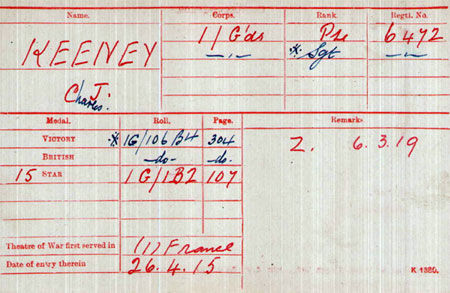 Name. Corps. Rank Regtl. No.
KEENEY 1/ G'ds Pte 6472
-,,- * Sgt -,,-
C J.
Charles.
Medal. Roll. Page. Remarks
VICTORY * IG/106 B4 304 Z. 6.3.19
BRITISH -do- do.
15 STAR IG/1B2 107
Theatre of War first served in (1) France
Date of entry therein 26.4.15
K 1380.